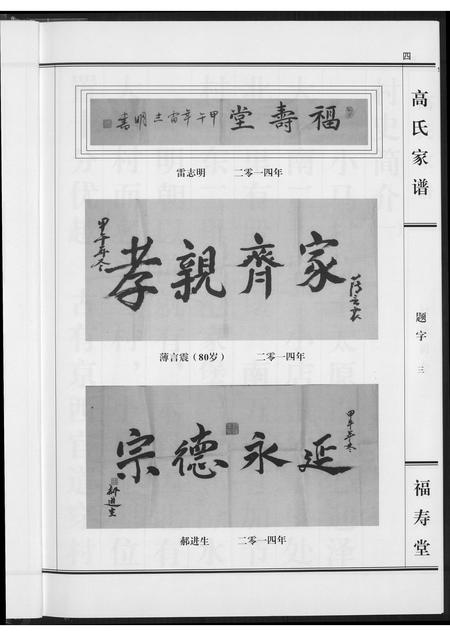 四
高氏家谱
题字 三
福寿堂
福壽堂
甲午年雷志明書
雷志明 二零一四年
家齊親孝
甲午年冬
薄言震(80岁) 二零一四年
甲午年冬
延永德宗
郝進生
郝进生 二零一四年